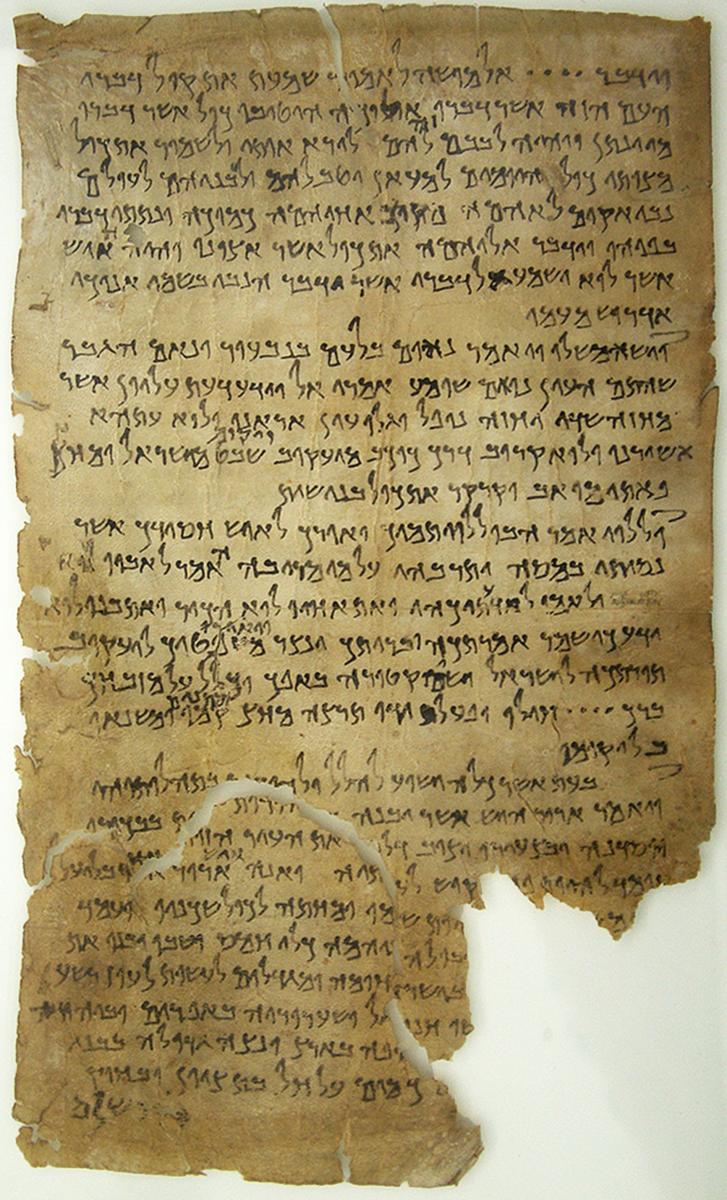 וידבר •••• אל מושה לאמור שמעת את קול דברי
העם הזה אשר דברו אליכה היטיבו כול אשר דברו
מי ינתן ויהיה לבבם זה להם לירא אותי ולשמור את כול
מצותי כול היומים למעאן יטב להם ולבניהם לעולם
נבי אקים לאהמה מקרב אחיהמה כמוכה ונתתי דברי
בפיהו וידבר אליהמה את כול אשר אצונו והיה האיש
אשר לוא ישמע אל דברי אשר ידבר הנבי בשמי אנוכי
אדרוש מעמו
וישא משלו ויאמר נאום בלעם בנבעור ונאם הגבר
שהתם העין נואם שומע אמרי אל וידע דעת עליון אשר
מחזה שדי יחזה נופל וגלו עין אראנו ולוא עתהא
אשורנו ולוא קרוב דרך כוכב מיעקוב ויקום שבט מישראל ומחץ
פאתי מואב וקרקר את כול בני שית
וללוי אמר הבו ללוי תמיך ואורך לאיש חסידך אשר
נסיתו במסה ותרבהו על מי מריבה האמר לאביו לוא
ולאמו לא ידעתיכהו ואת אחיו לוא הכיר ואת בנו לוא
ידע כי שמר אמרתכה ובריתך ינצר ויאירו משפטיך ליעקוב
תורתכה לישראל ישם קטורה באפך וכליל על מזבחך
ברך •••• חילו ופעל ידו תרצה מחץ מתנים קמו ומשנאו
בל יקומו
בעת אשר כלה ישוע להלל ולהודות בתהלותיהו
ויאמר ארור היש אשר יבנה בבכורו
ייסדנה ובצעירו יציב דלתיה את העיר הזות
ואנה ארור איש בליעל
עומד להיות קוש לעמו ומחתה לכול שכניו ועמד
שניהמה כלי חמס וישבו ובנו את
חומה ומגדלים לעשות לעוז רשע
בישראל ושערוריה באפרים וביהודה
חנופה בארץ ונצה גדולה בבני
כמים על חל בת ציון ובחוק
ירושלם